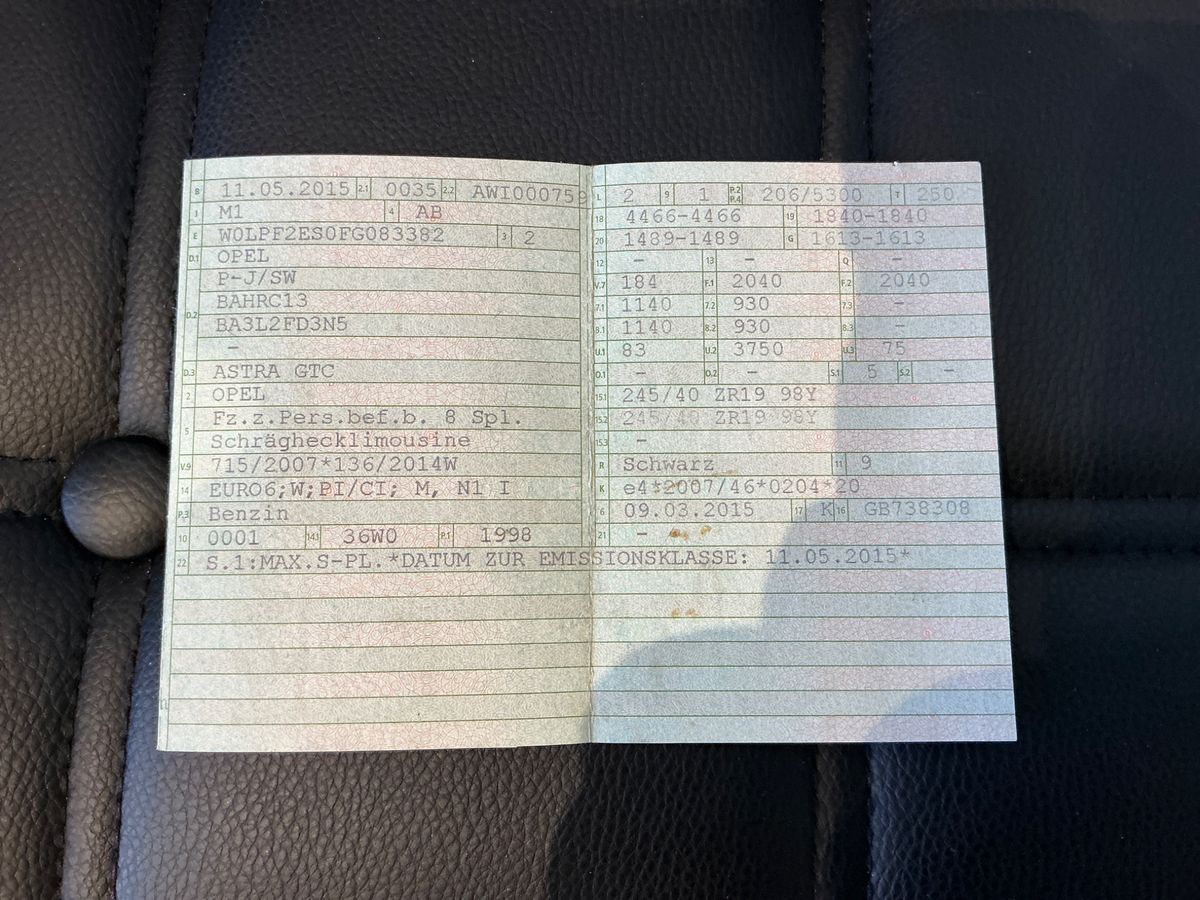 B 11.05.2015 2.1 0035 2.2 AWI000759
J M1 4 AB
E W0LPF2ES0FG083382 3 2
D.1 OPEL
P-J/SW
D.2 BAHRC13
BA3L2FD3N5
–
D.3 ASTRA GTC
2 OPEL
5 Fz.z.Pers.bef.b. 8 Spl.
Schräghecklimousine
V.9 715/2007*136/2014W
14 EURO6;W;PI/CI; M, N1 I
P.3 Benzin
10 0001 14.1 36W0 P.1 1998
22 S.1:MAX.S-PL.*DATUM ZUR EMISSIONSKLASSE: 11.05.2015*
L 2 9 1 P.2 P.4 206/5300 T 250
18 4466-4466 19 1840-1840
20 1489-1489 G 1613-1613
12 – 13 – Q –
V.7 184 F.1 2040 F.2 2040
7.1 1140 7.2 930 7.3 –
8.1 1140 8.2 930 8.3 –
U.1 83 U.2 3750 U.3 75
O.1 – O.2 – S.1 5 S.2 –
15.1 245/40 ZR19 98Y
15.2 245/40 ZR19 98Y
15.3 –
R Schwarz 11 9
K e4*2007/46*0204*20
6 09.03.2015 17 K 16 GB738308
21 –